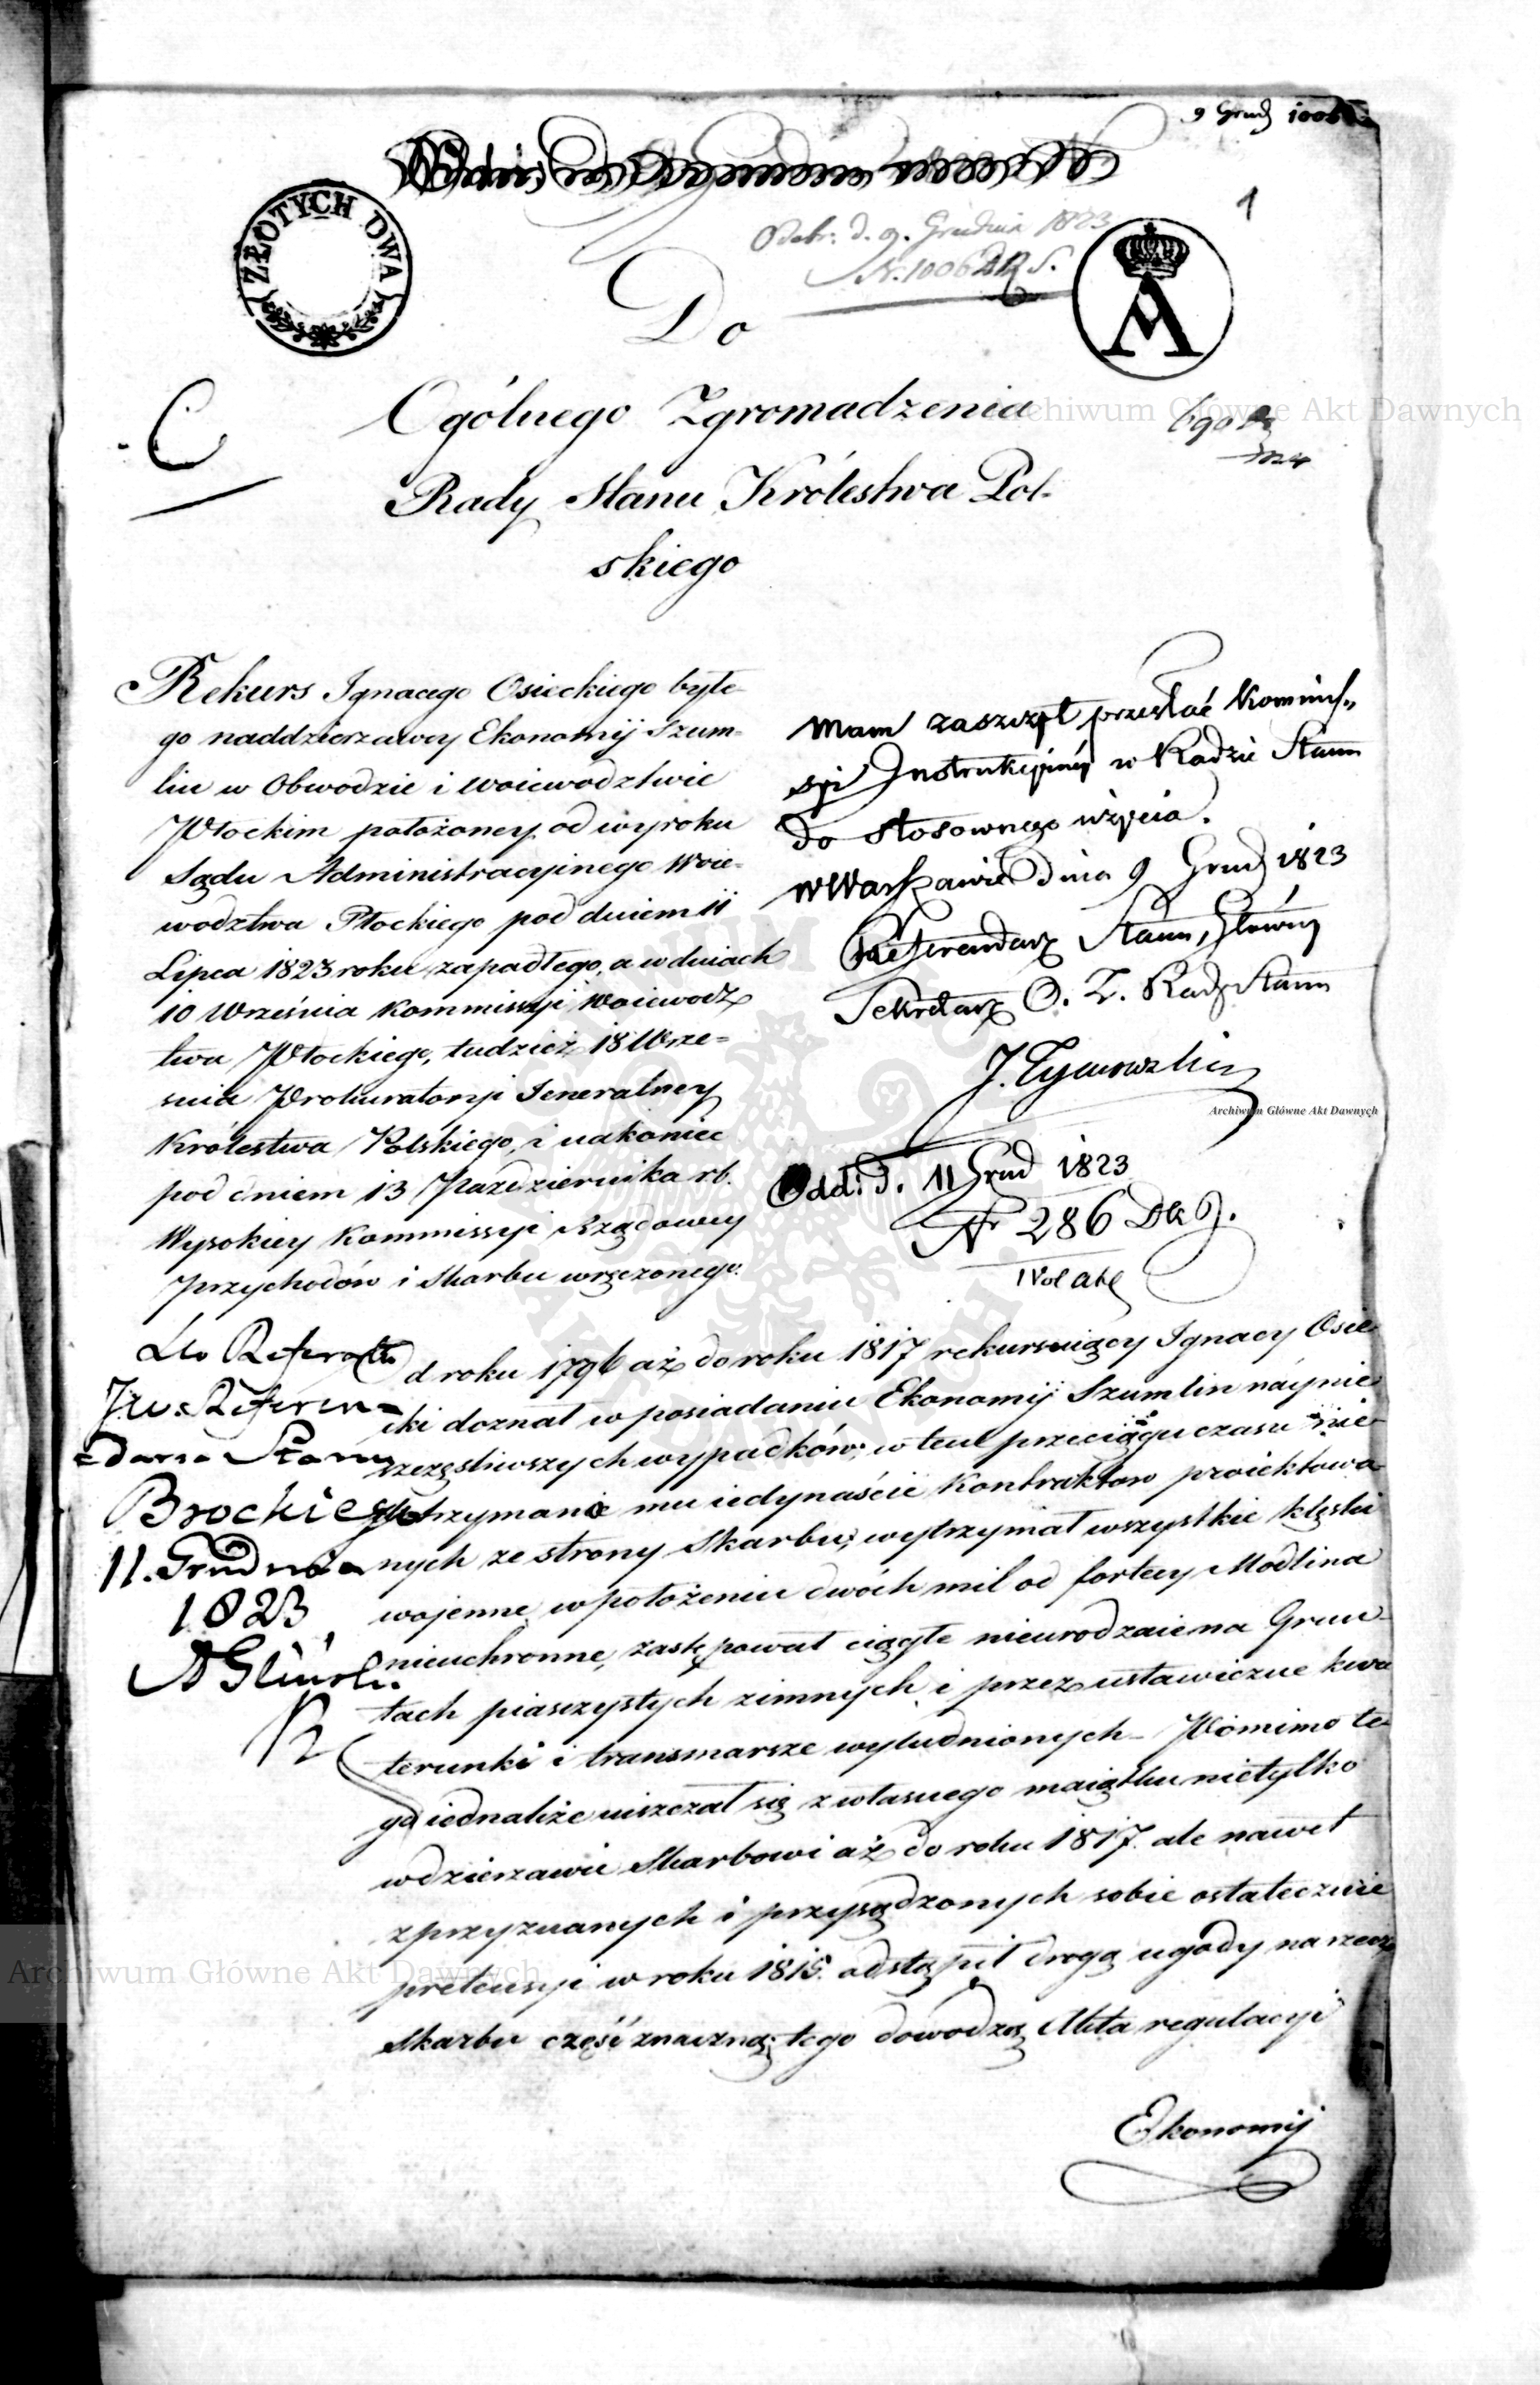 9 Grud 1006
ZŁOTYCH DWA
1
Odebr. d. 9. Grudnia 1823
N. 1006 S.
A
Do
C
Ogólnego Zgromadzenia
Rady Stanu Królestwa Pol-
skiego
Rekurs Ignacego Osieckiego byłe-
go naddzierzawcy Ekonomij Szum-
lin w Obwodzie i Woiewodztwie
Płockim położoney, od wyroku
Sądu Administracyinego Woie-
wodztwa Płockiego pod dniem 11
Lipca 1823 roku, zapadłego, a w dniach
10 Września Kommissyi Woiewodz
twa Płockiego, tudzież 18 Wrze-
śnia Prokuratoryi Jeneralney
Królestwa Polskiego, i nakoniec
pod dniem 13 Października rb.
Wysokiey Kommissyi Rządowey
Przychodów i Skarbu wręczonego.
Mam zaszczyt przesłać Kommis-
syi Instrukcyiney w Radzie Stanu
do stosownego użycia.
w Warszawie dnia 9 Grud 1823
Referendarz Stanu, Główny
Sekretarz O. Z. Rady Stanu
J. Tymowski
Odd: d. 11 Grud 1823
Nr 286
1 Vol
Do Referatu
JW. Referen-
darza Stanu
Brockiego
11. Grudnia
1823
A Gliński
Od roku 1796 aż do roku 1817 rekursuiący Ignacy Osie
cki doznał w posiadaniu Ekonomij Szumlin náynie
szczęśliwszych wypadków; w tem przeciągu czasu nie
dotrzymanie mu iedynaście Kontraktow proiektowa
nych ze strony Skarbu; wytrzymał wszystkie klęski
wojenne w położeniu dwóch mil od fortecy Modlina
nieuchronne, zastępował ciągłe nieurodzaie na Grun-
tach piasczystych zimnych i przez ustawiczne kwa
terunki i transmarsze wyludnionych - Pomimo te-
go iednakże uiszczał się z własnego maiątku nietylko
w dzierzawie Skarbowi aż do roku 1817. ale nawet
z przyznanych i przysądzonych sobie ostatecznie
pretensyi w roku 1818. odstąpił drogą ugody na rzecz
Skarbu część znaczną; tego dowodzą Akta regulacyi
Ekonomij
Archiwum Główne Akt Dawnych
Archiwum Główne Akt Dawnych
Archiwum Główne Akt Dawnych
ARCHIWUM GŁÓWNE AKT DAWNYCH